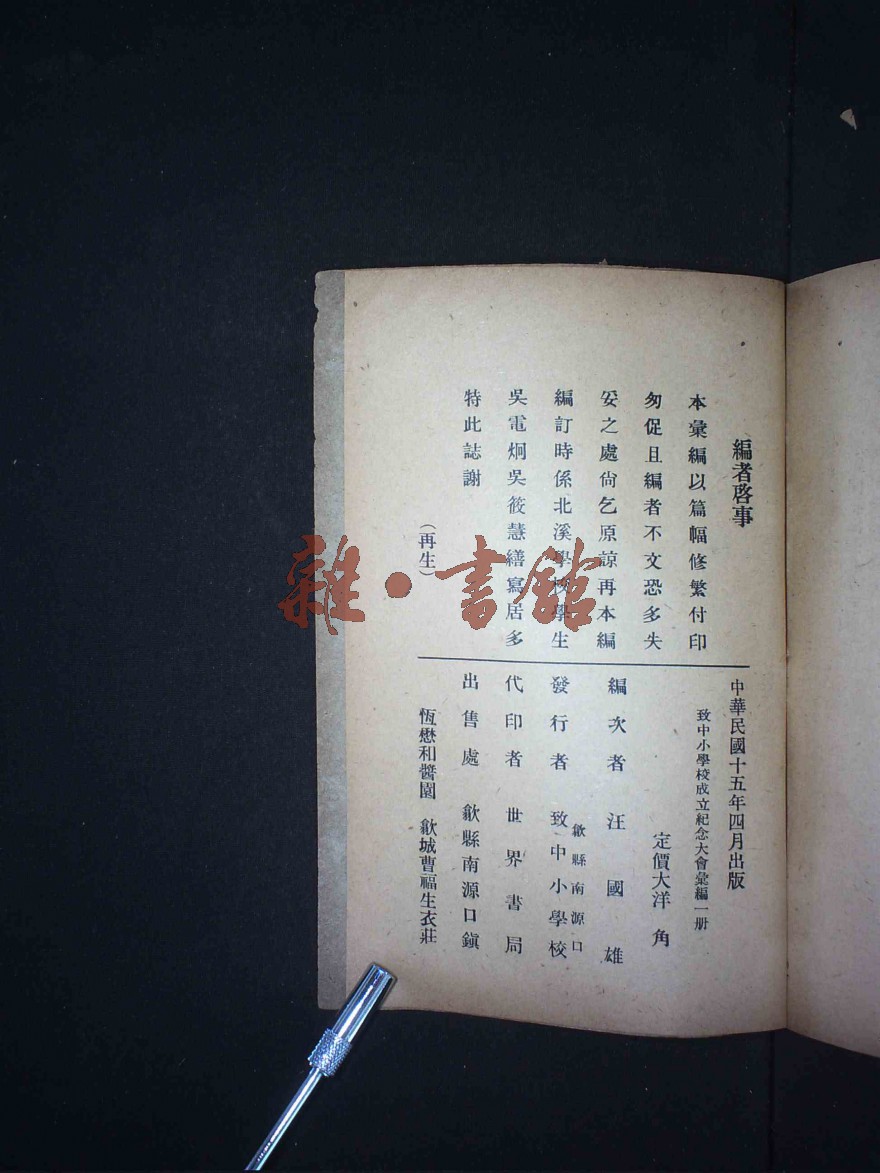 編者啓事
本彙編以篇幅修繁付印
匆促且編者不文恐多失
妥之處尙乞原諒再本編
編訂時係北溪學校學生
吳電炯吳筱慧繕寫居多
特此誌謝
(再生)
中華民國十五年四月出版
致中小學校成立紀念大會彙編一册
定價大洋 角
編次者 汪國雄
歙縣南源口
發行者 致中小學校
代印者 世界書局
出售處 歙縣南源口鎭
恆懋和醬園 歙城曹福生衣莊
雜·書館